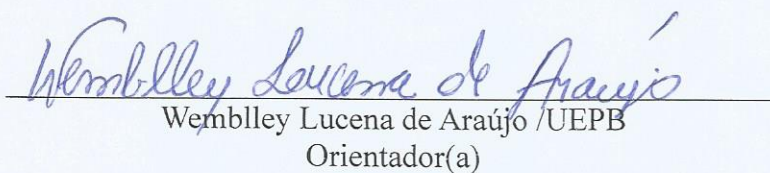 Wemblley Lucena de Araújo
Wemblley Lucena de Araújo /UEPB
Orientador(a)